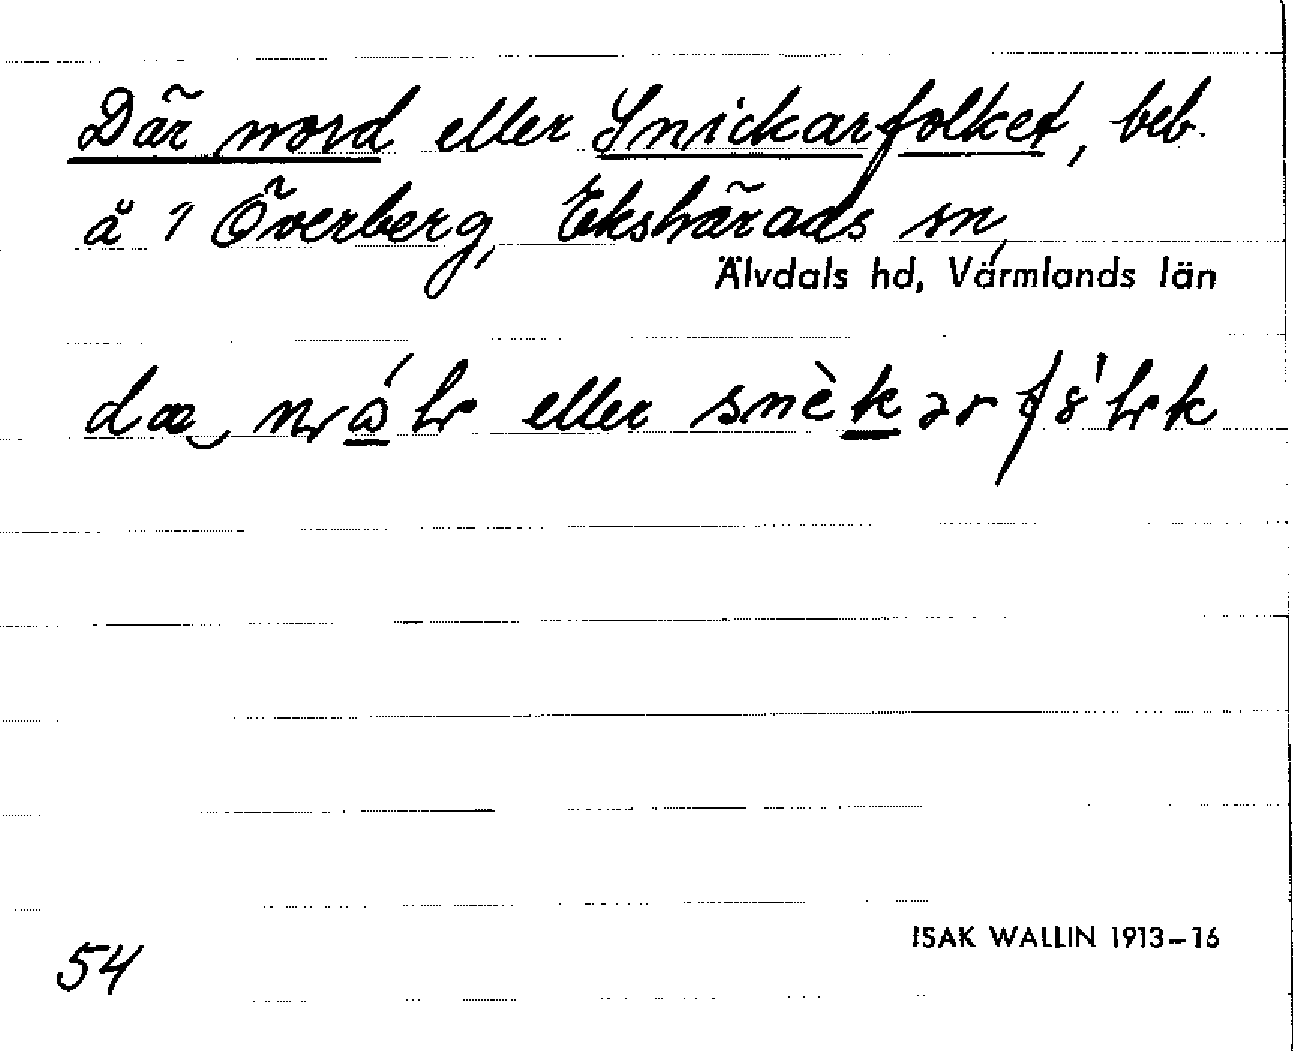 Där nord eller Snickarfolket, beb.
å 1 Överberg, Ekshärads sn,
Älvdals hd, Värmlands län
eller
54
ISAK WALLIN 1913–16